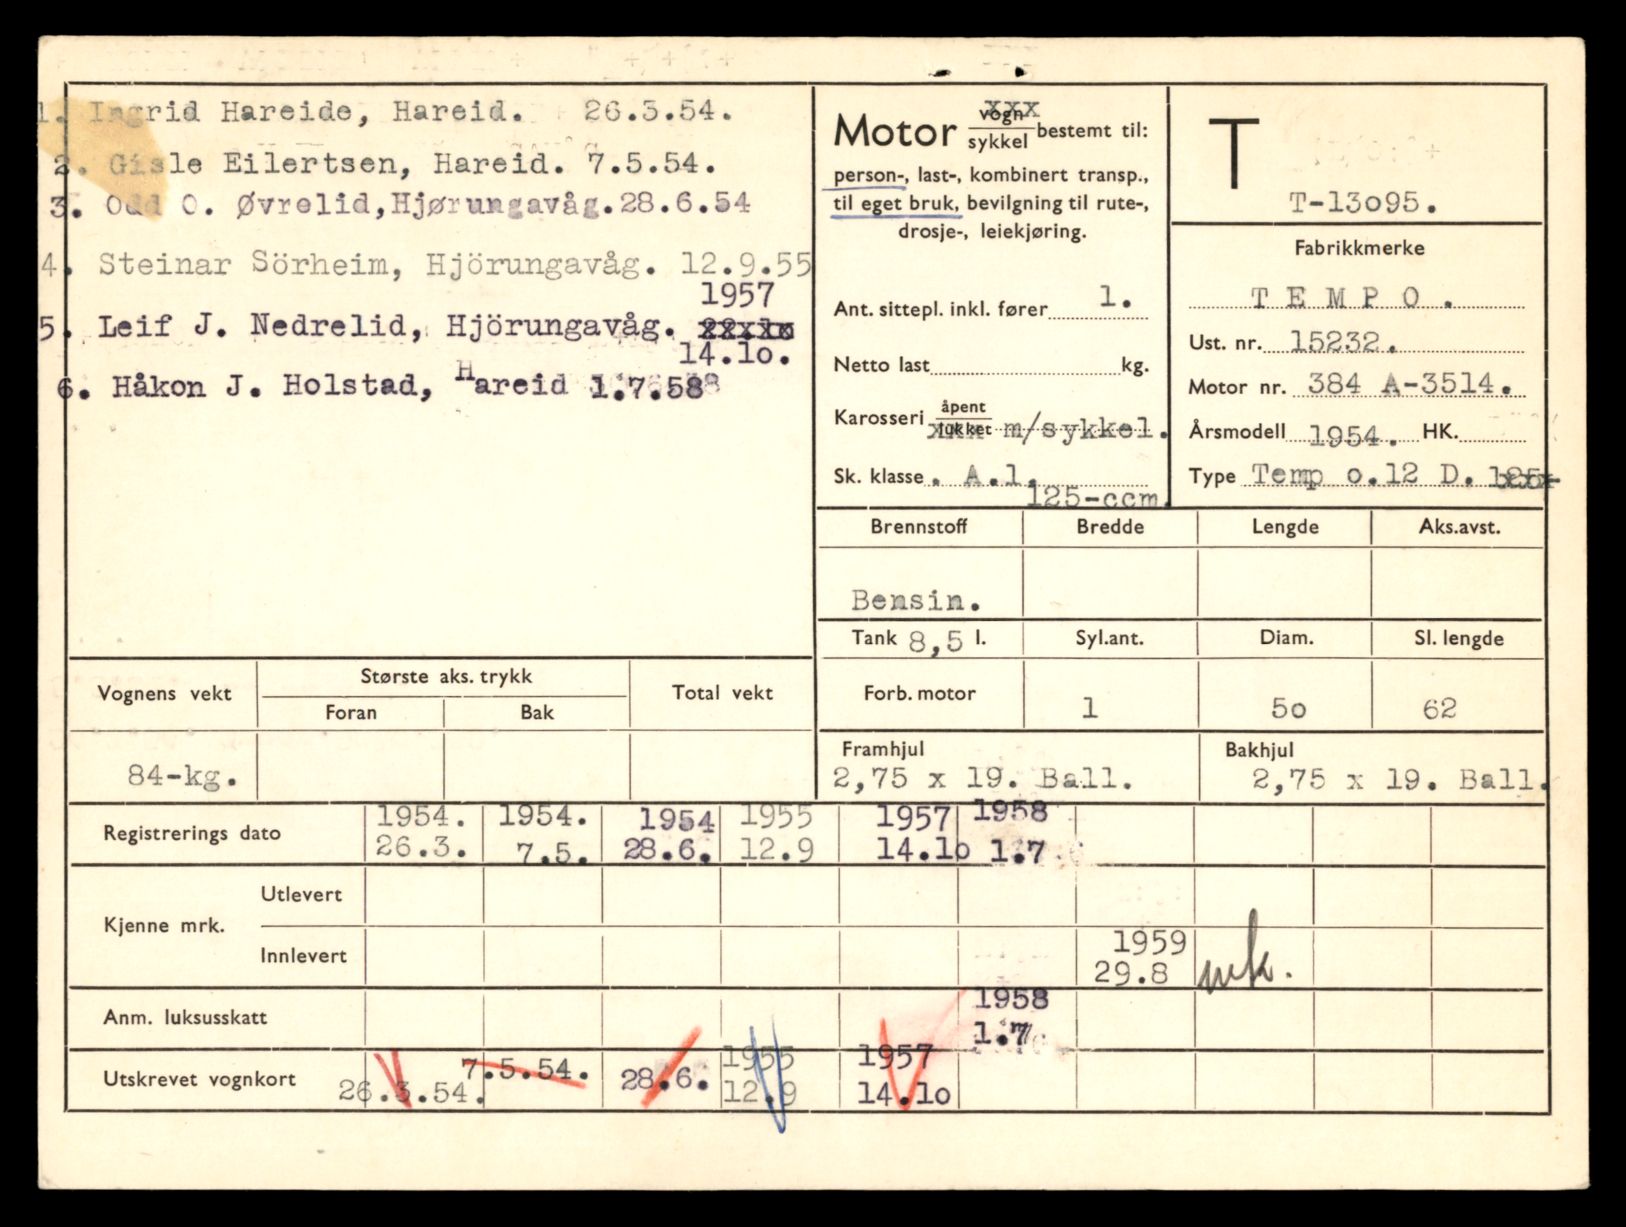 1. Ingrid Hareide, Hareid. 26.3.54.
2. Gisle Eilertsen, Hareid. 7.5.54.
3. Odd O. Øvrelid,Hjørungavåg.28.6.54
4. Steinar Sörheim, Hjörungavåg. 12.9.55
1957
5. Leif J. Nedrelid, Hjörungavåg.
14.1o.
6. Håkon J. Holstad, Hareid 1.7.58
Motor vogn sykkel bestemt til:
person-, last-, kombinert transp.,
til eget bruk, bevilgning til rute-,
drosje-, leiekjøring.
Ant. sittepl. inkl. fører 1.
Netto last kg.
Karosseri åpent lukket m/sykkel.
Sk. klasse . A.1.
125-ccm.
T
T-13o95.
Fabrikkmerke
T E M P O .
Ust. nr. 15232.
Motor nr. 384 A-3514.
Årsmodell 1954. HK.
Type Temp o.12 D.
Brennstoff Bredde Lengde Aks.avst.
Bensin.
Tank 8,5 l. Syl.ant. Diam. Sl. lengde
Forb. motor 1 5o 62
Framhjul Bakhjul
2,75 x 19. Ball. 2,75 x 19. Ball.
Vognens vekt Største aks. trykk Total vekt
Foran Bak
84-kg.
Registrerings dato 1954. 1954. 1954 1955 1957 1958
26.3. 7.5. 28.6. 12.9 14.1o 1.7
Kjenne mrk. Utlevert
Innlevert 1959
29.8 mk.
Anm. luksusskatt 1958
1.7
Utskrevet vognkort 26.3.54. 7.5.54. 28.6. 1955 1957
12.9 14.1o